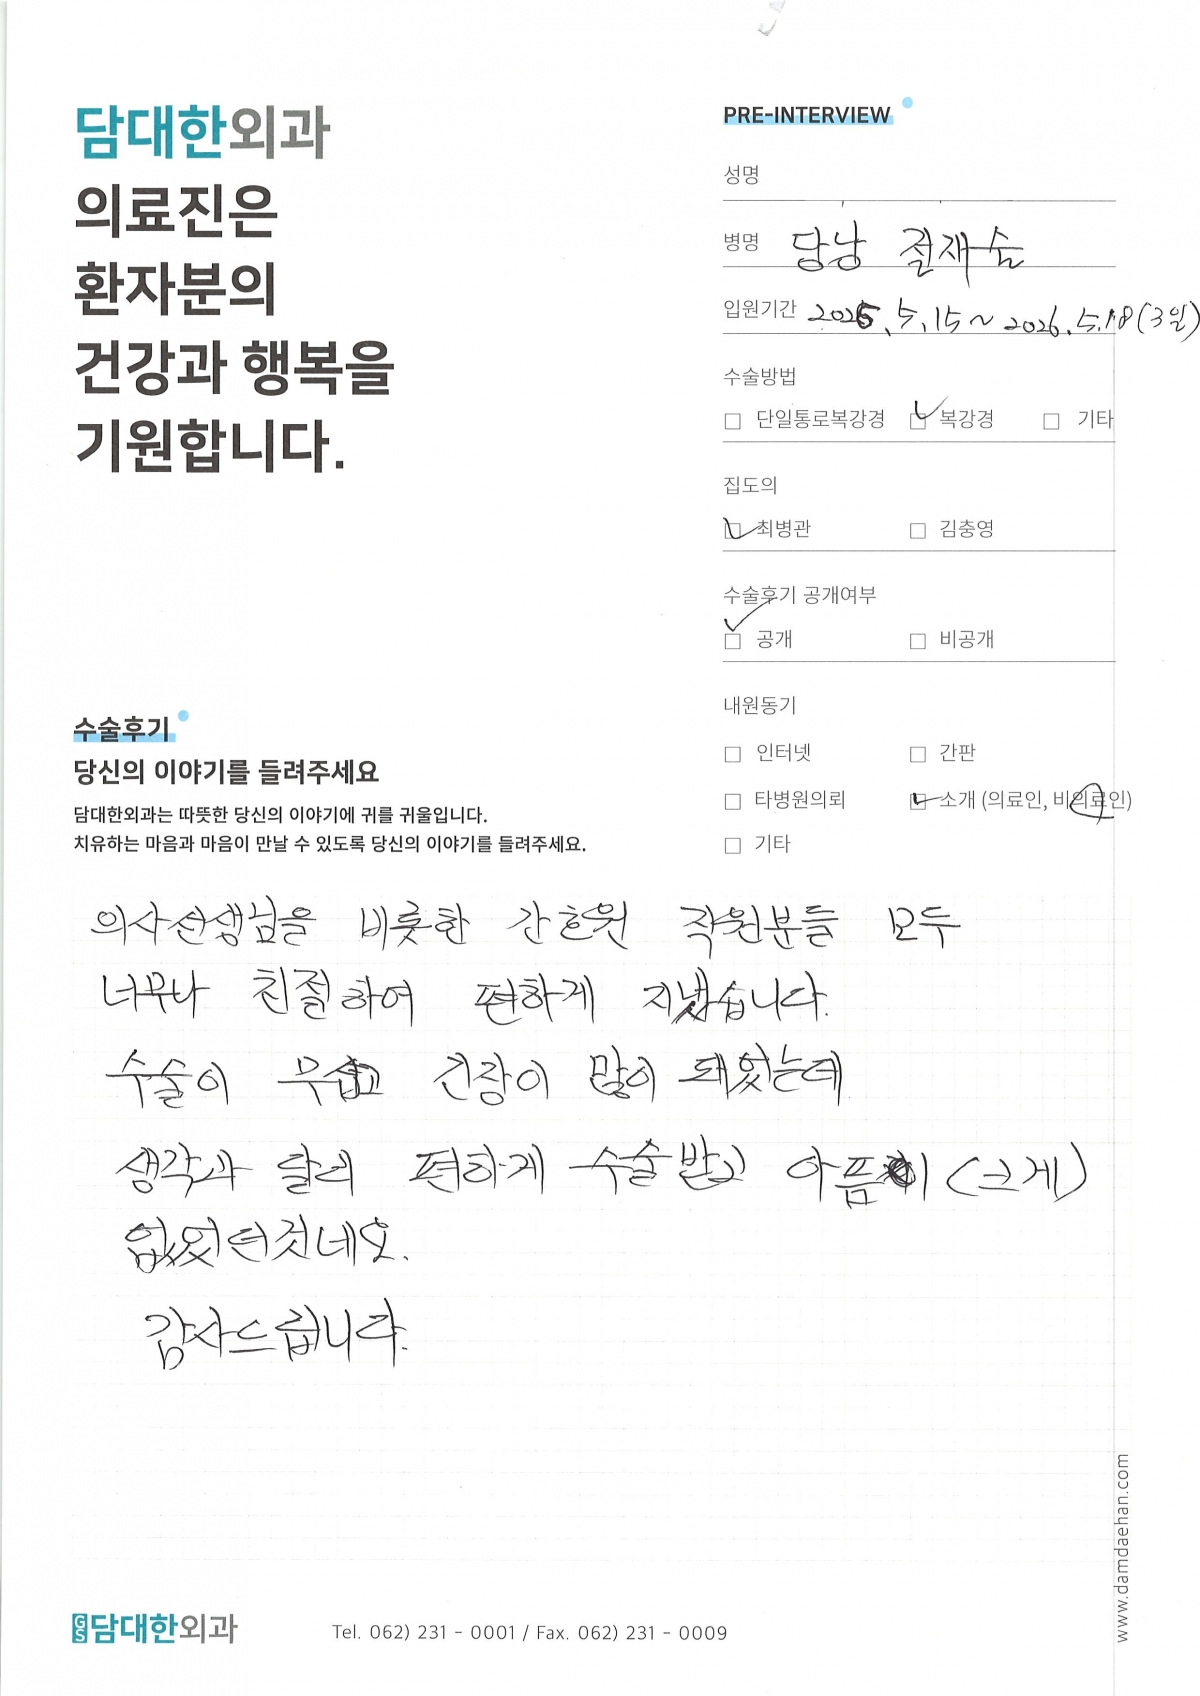 담대한외과
의료진은
환자분의
건강과 행복을
기원합니다.
PRE-INTERVIEW
성명
병명 담낭 절재술
입원기간 2026. 5. 15 ~ 2026. 5. 18 (3일)
수술방법
□ 단일통로복강경 ☑ 복강경 □ 기타
집도의
☑ 최병관 □ 김충영
수술후기 공개여부
☑ 공개 □ 비공개
내원동기
□ 인터넷 □ 간판
□ 타병원의뢰 ☑ 소개 (의료인, 비의료인)
□ 기타
수술후기
당신의 이야기를 들려주세요
담대한외과는 따뜻한 당신의 이야기에 귀를 귀울입니다.
치유하는 마음과 마음이 만날 수 있도록 당신의 이야기를 들려주세요.
의사선생님을 비롯한 간호원 직원분들 모두
너무나 친절하여 편하게 지냈습니다.
수술이 무섭고 긴장이 많이 돼었는데
생각과 달리 편하게 수술받고 아픔이 (크게)
없었던것네요.
감사드립니다.
GS 담대한외과
Tel. 062) 231 - 0001 / Fax. 062) 231 - 0009
www.damdaehan.com